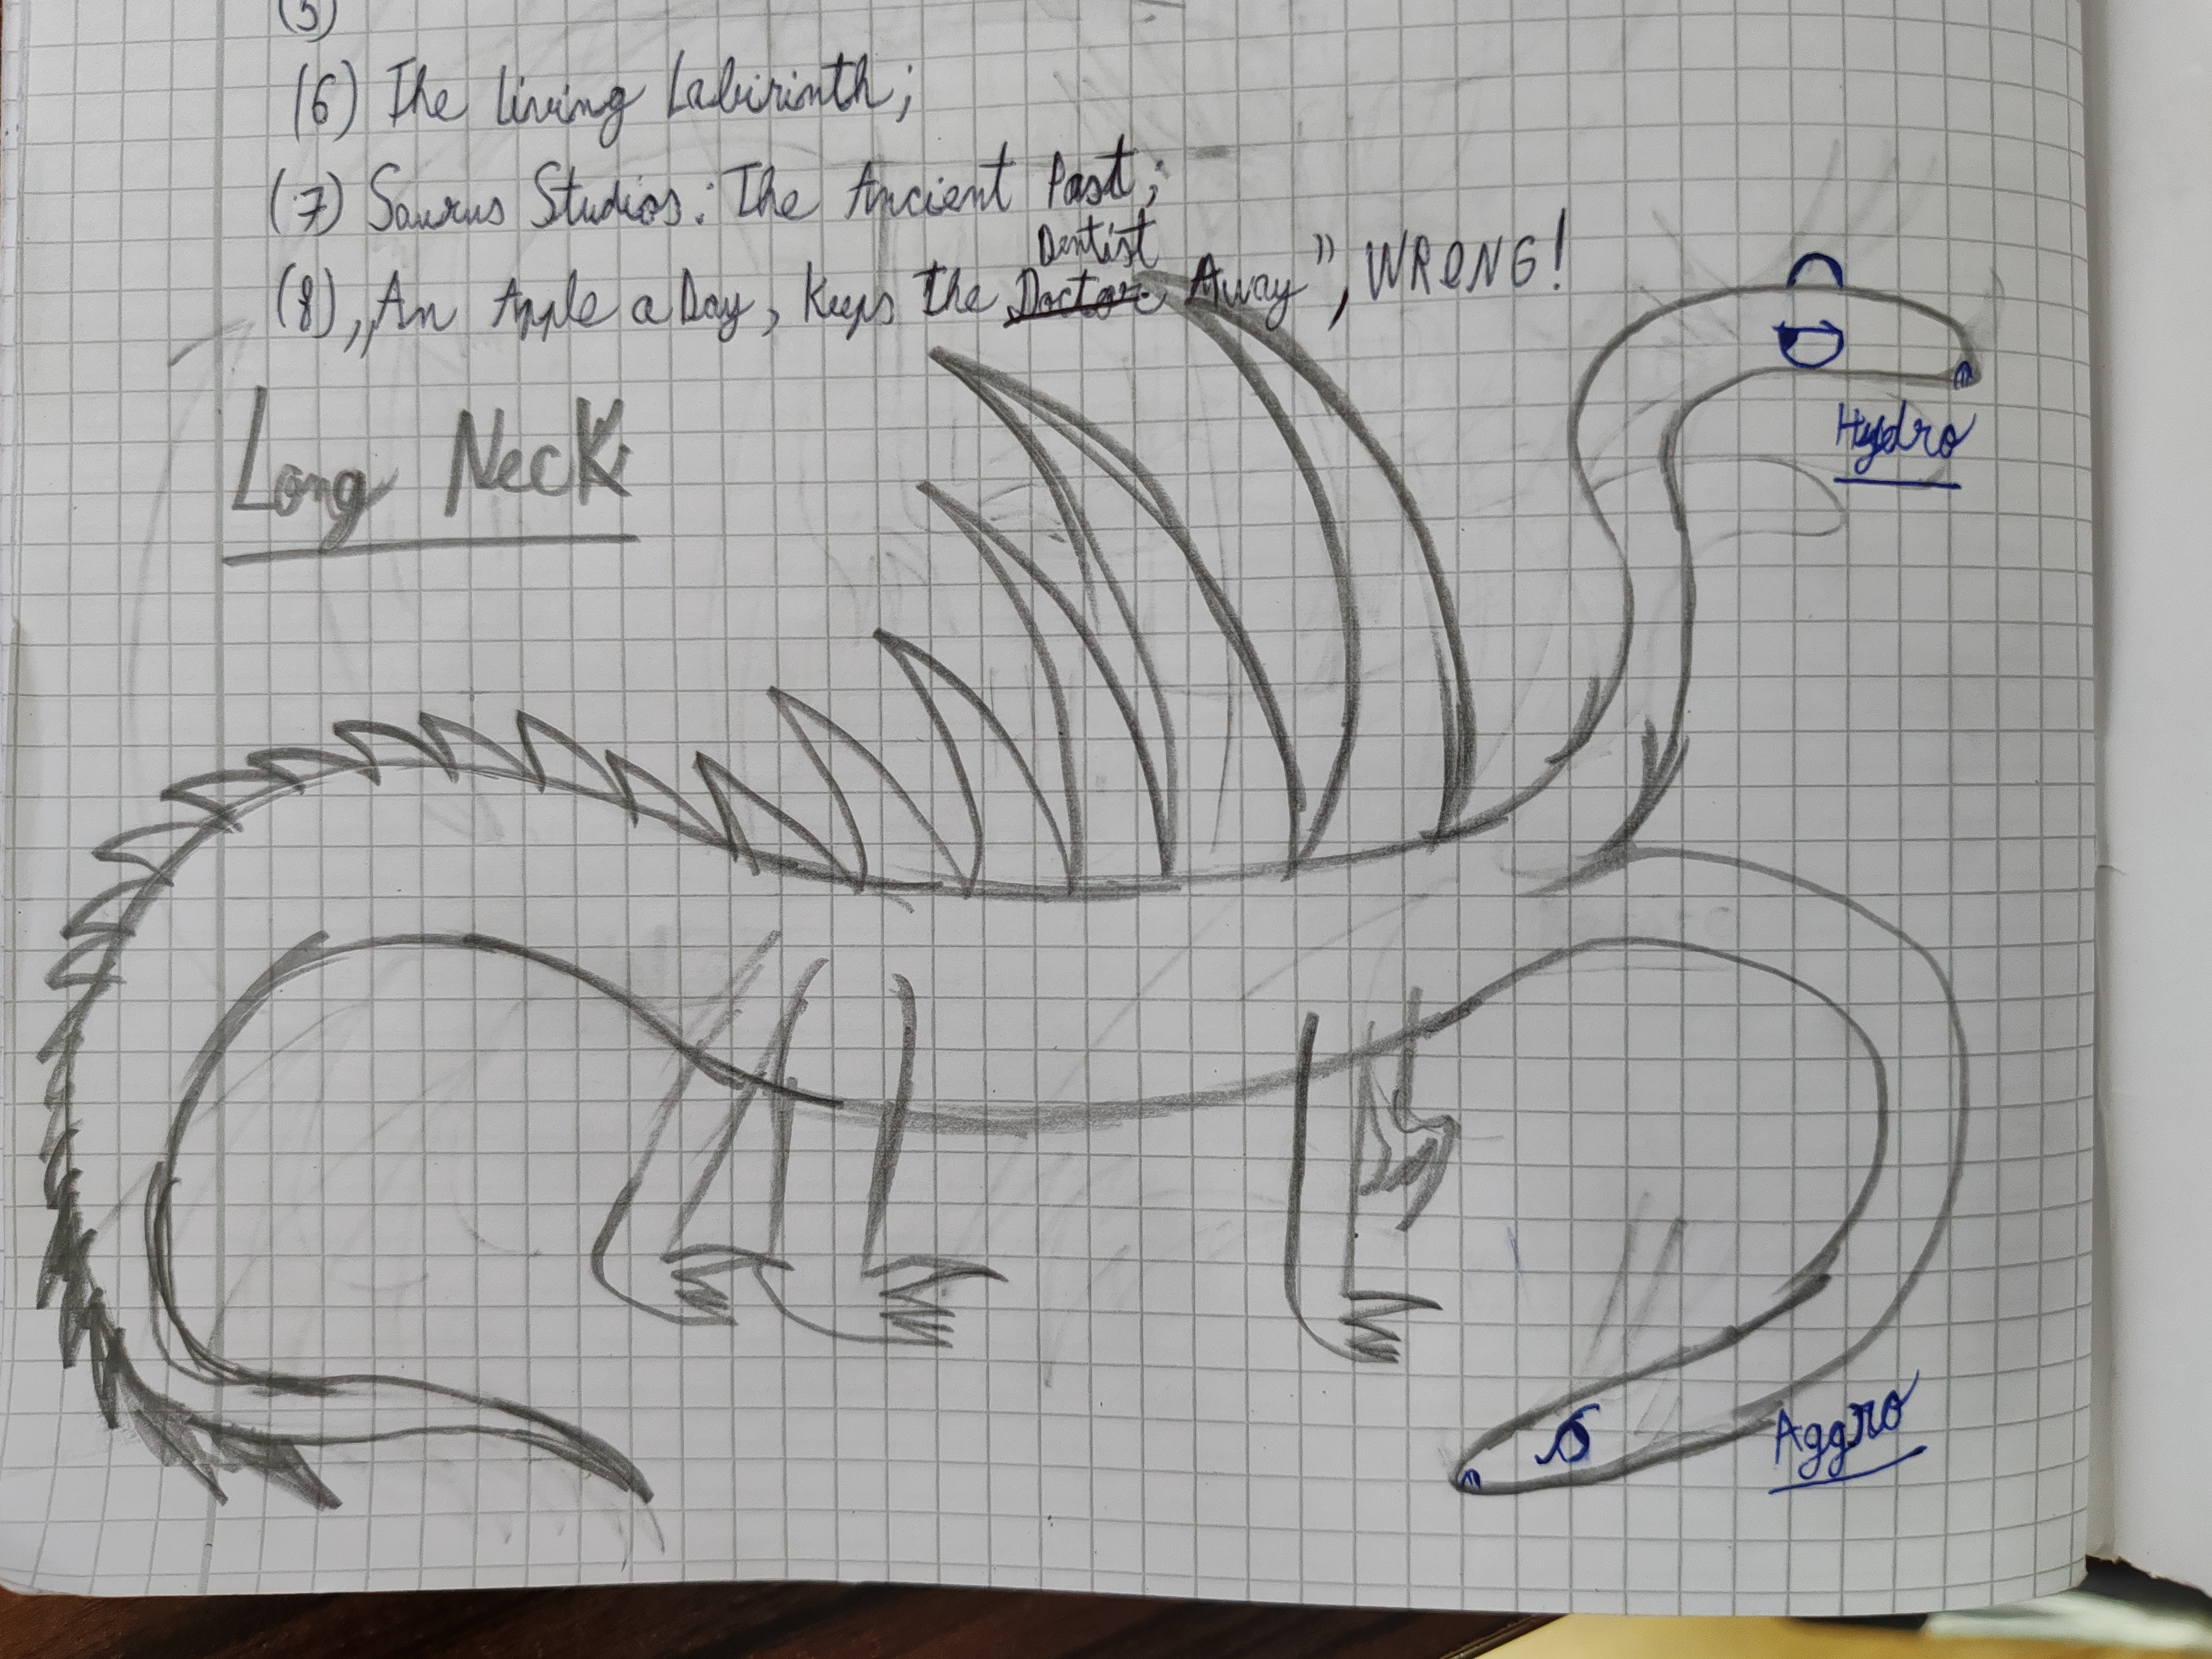 (5)
(6) The Living Labirinth;
(7) Saurus Studios: The Ancient Past;
Dentist
(8) „An Apple a Day, Keeps The Doctor Away”, WRONG!
Long Neck
Hydro
Aggro